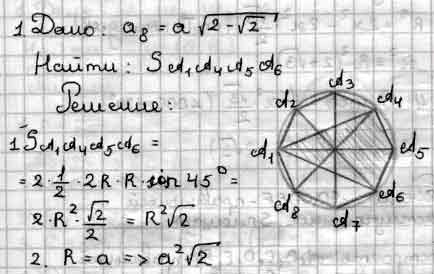 1 Дано: a₈ = a √(2-√2)
Найти: S A₁A₄A₅A₆
Решение:
1 S A₁A₄A₅A₆ =
= 2·1/2·2R·R·sin 45° =
2·R²·√2/2 = R²√2
2. R = a => a²√2
A₃
A₂ A₄
A₁ A₅
A₈ A₆
A₇